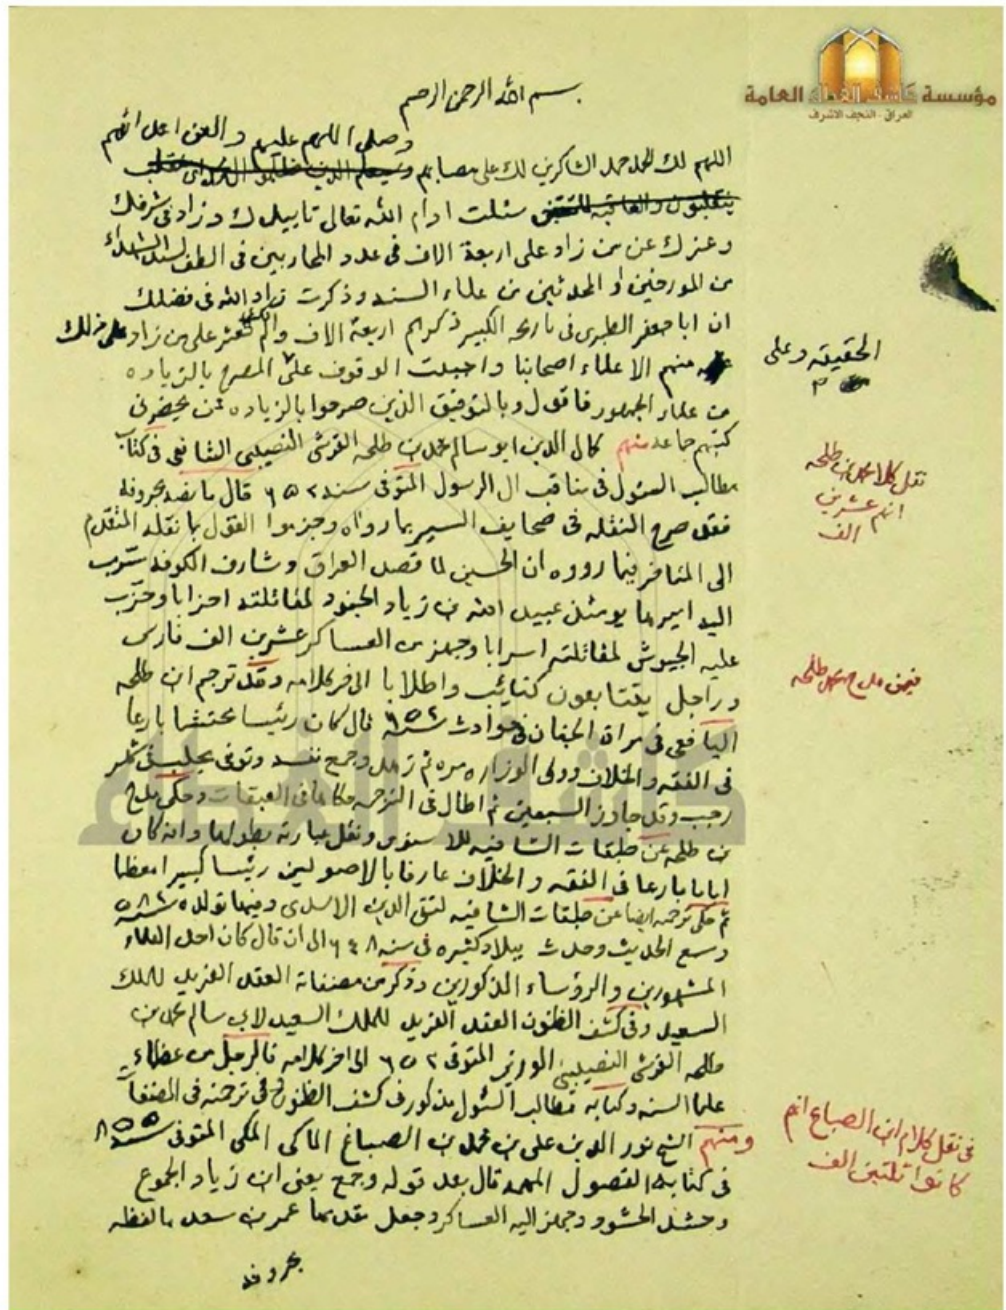 مؤسسة كاشف الغطاء العامة
العراق - النجف الاشرف
بسم الله الرحمن الرحيم
وصلى اللهم عليهم والعن اعدائهم
اللهم لك الحمد حمد الشاكرين لك على مصابهم
سئلت ادام الله تعالى تاييدك وزاد في شرفك
وعزك عن من زاد على اربعة الاف في عدد المحاربين في الطف لسيد الشهداء
من المورخين او المحدثين من علماء السنه وذكرت زاد الله في فضلك
ان ابا جعفر الطبري في تاريخه الكبير ذكرانهم اربعة الاف وانك لم تعثر على من زاد على ذلك
منهم الا علماء اصحابنا واحببت الوقوف على المصرح بالزياده
الحقيقه وعلى
من علماء الجمهور فاقول وبالتوفيق الذين صرحوا بالزياده ممن يحضرني
كتبهم جماعه منهم كمال الدين ابو سالم محمد بن طلحه القرشي النصيبي الشافعي في كتاب
مطالب السئول في مناقب ال الرسول المتوفى سنه ٦٥٢ قال ما نصه بحروفه
نقل كلام محمد بن طلحه
انهم عشرين
الف
فقد صرح النقله في صحايف السير بما رواه وجزموا القول بما نقله المتقدم
الى المتاخر فيما رووه ان الحسين لما قصد العراق وشارف الكوفه سرب
اليه اميرها يومئذ عبيد الله بن زياد الجنود لمقاتلته احزابا وحزب
عليه الجيوش لمقاتلته اسرابا وجهز من العساكر عشرين الف فارس
وراجل يتتابعون كتائب واطلابا الى اخر كلامه وقد ترجم ابن طلحه
فيمن مدح محمد بن طلحه
اليافعي في مراة الجنان في حوادث سنه ٦٥٢ قال كان رئيسا محتشما بارعا
في الفقه والخلاف وولى الوزاره مره ثم زهد وجمع نفسه وتوفى بحلب في شهر
رجب وقد جاوز السبعين ثم اطال في الترجمه كما في العبقات وحكى مدح
بن طلحه عن طبقات الشافعيه للاسنوي ونقل عبارته بطولها وانه كان
اماما بارعا في الفقه والخلاف عارفا بالاصولين رئيسا كبيرا معظما
ثم حكى ترجمه ايضا عن طبقات الشافعيه لتقي الدين الاسدي وفيها تولده سنه ٥٨٢
وسمع الحديث وحدث ببلاد كثيره في سنه ٦٤٨ الى ان قال كان احد العلماء
المشهورين والرؤساء المذكورين وذكر من مصنفاته العقد الفريد للملك
السعيد وفي كشف الظنون العقد الفريد للملك السعيد لابي سالم محمد بن
طلحه القرشي النصيبي الوزير المتوفى ٦٥٢ الى اخر كلامه فالرجل من عظماء
علما السنه وكتابه مطالب السئول مذكور في كشف الظنون وفي ترجمته في المصنفات
ومنهم الشيخ نور الدين علي بن محمد بن الصباغ المالكي المكي المتوفى سنه ٨٥٥
في نقل كلام ابن الصباغ انهم
كانوا ثلثين الف
في كتابه الفصول المهمه قال بعد قوله وجمع يعني ابن زياد الجموع
وحشد الحشود وجهز اليه العساكر وجعل مقدمها عمر بن سعد ما لفظه
بحروفه